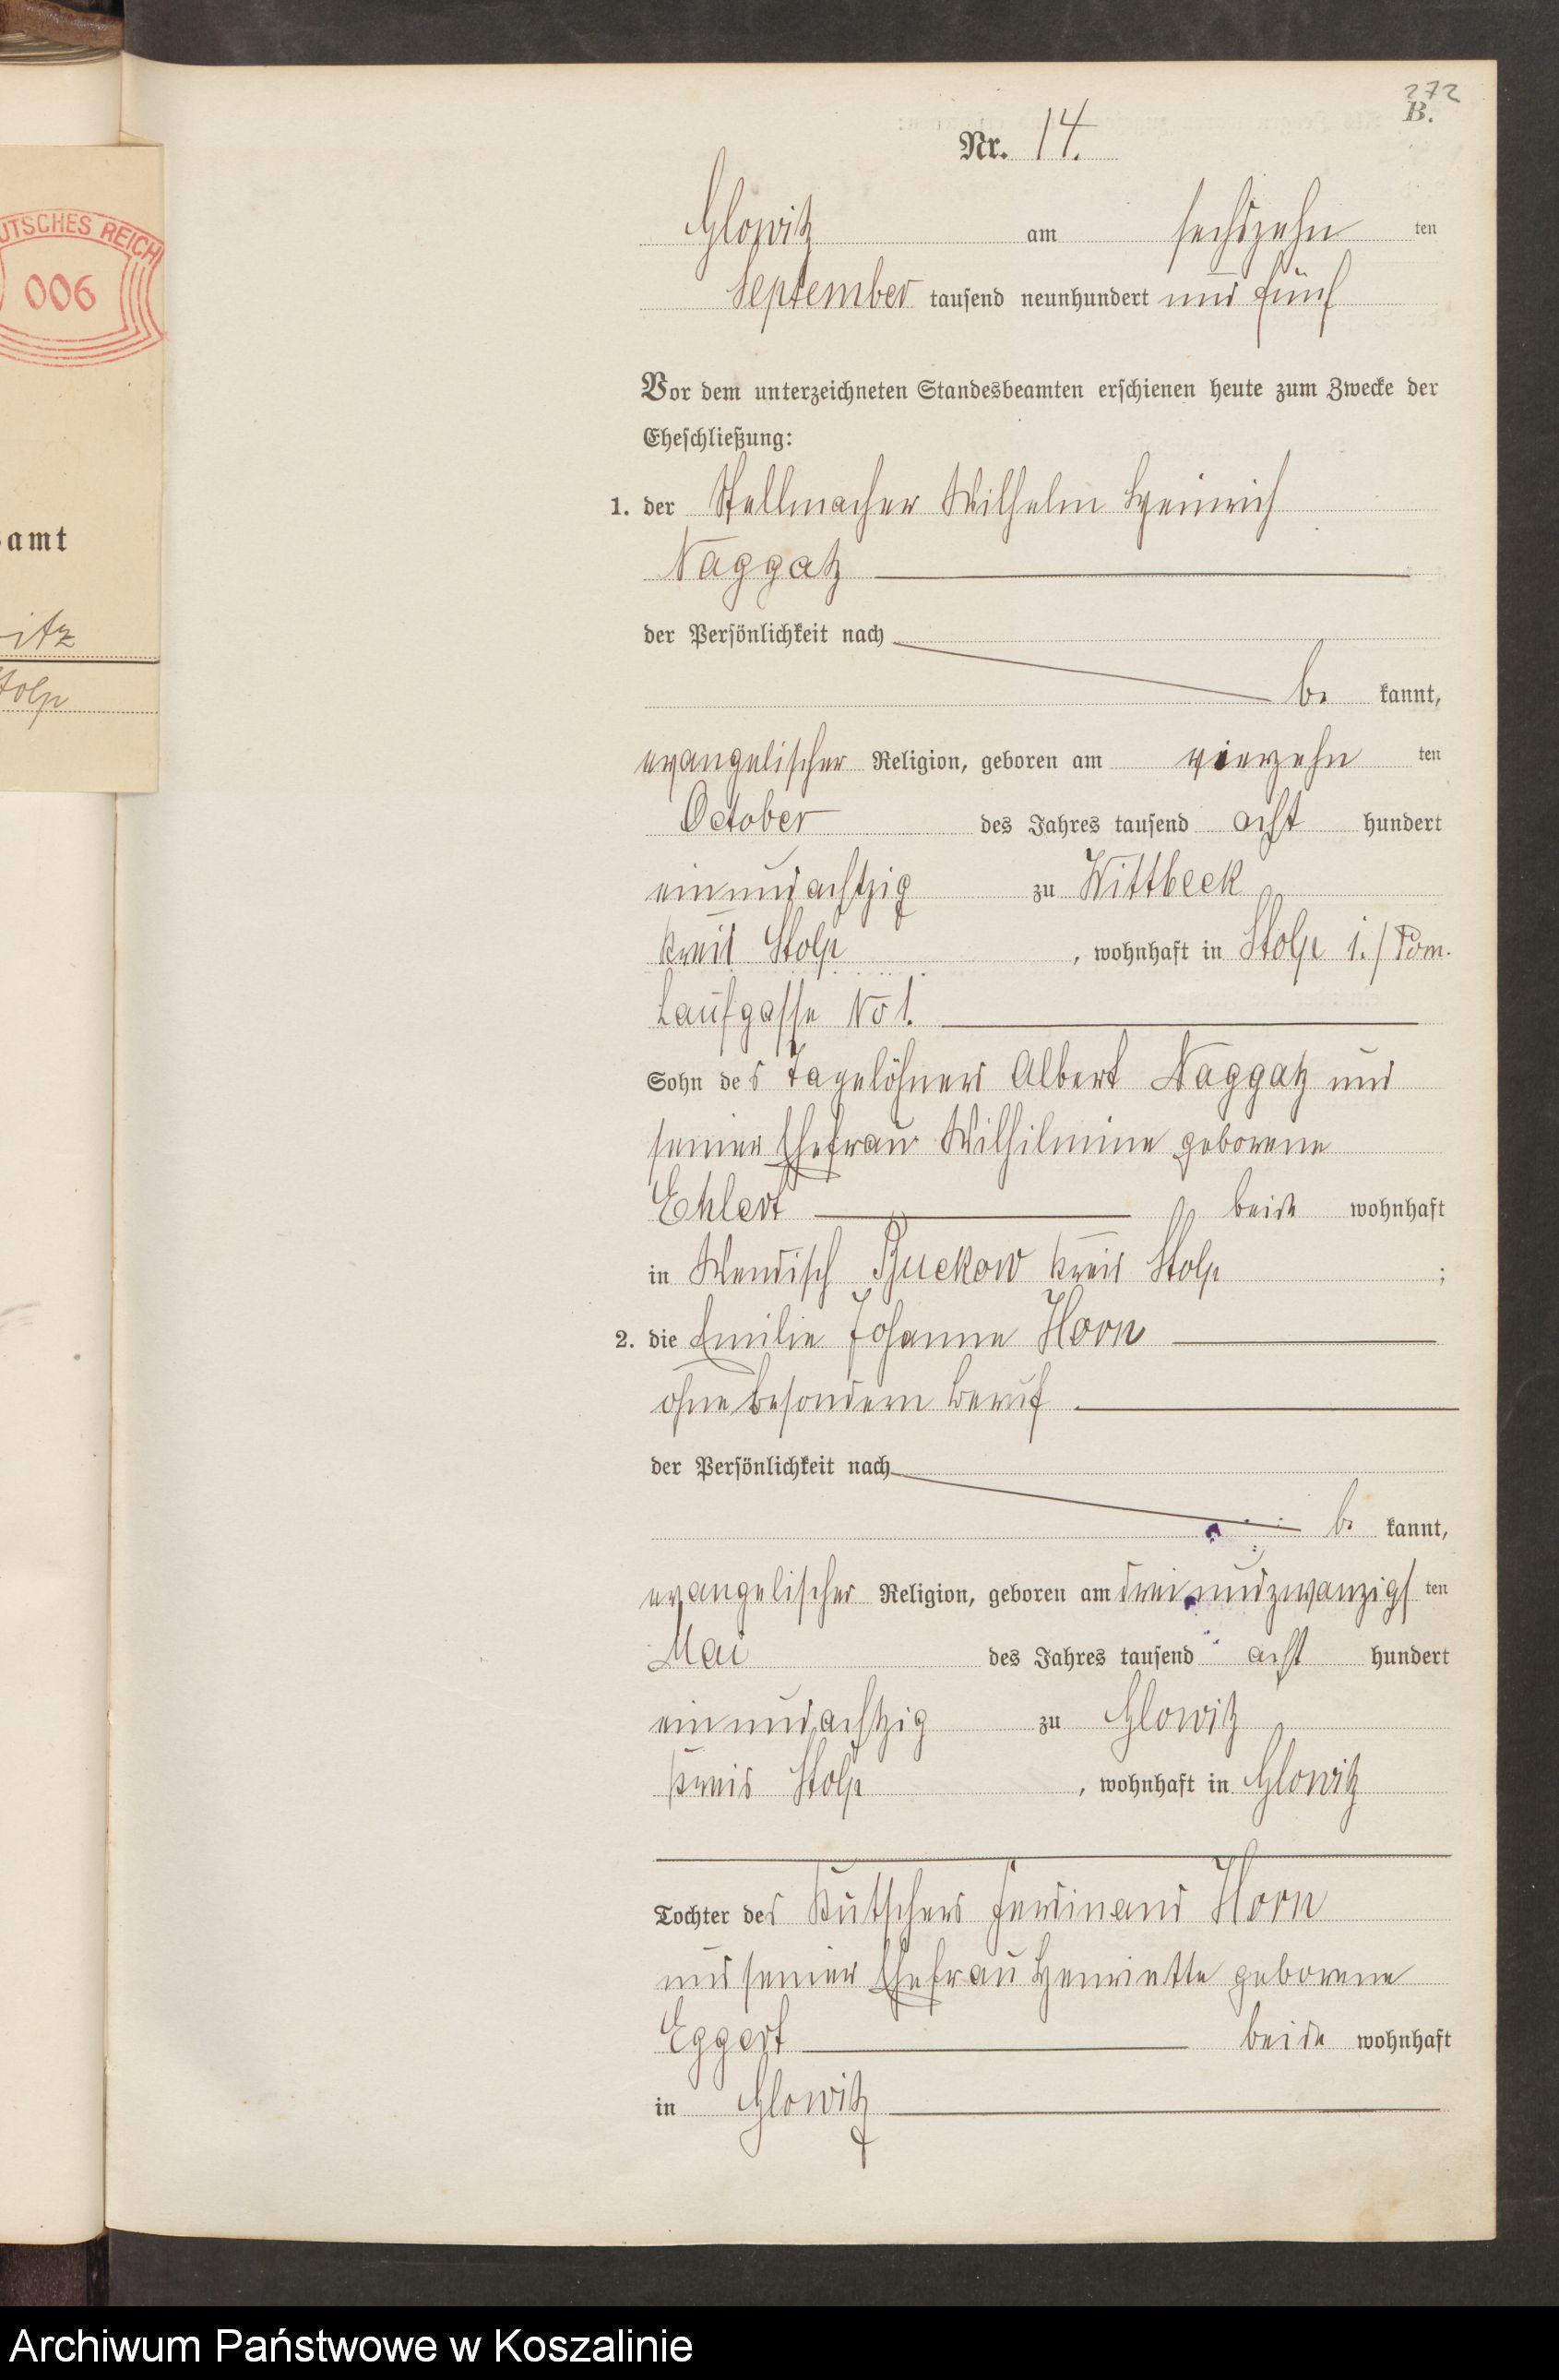 272
B.
Nr. 14.
Glowitz am sechszehn ten
September tausend neunhundert und fünf
Vor dem unterzeichneten Standesbeamten erschienen heute zum Zwecke der
Eheschließung:
1. der Stellmacher Wilhelm Heinrich
Naggatz
der Persönlichkeit nach
be kannt,
evangelischer Religion, geboren am vierzehn ten
October des Jahres tausend acht hundert
einundachtzig zu Wittbeck
Kreis Stolp, wohnhaft in Stolp i./Pom.
Laufgasse No 1.
Sohn des Tagelöhners Albert Naggatz und
seiner Ehefrau Wilhilmine geborene
Ehlert beide wohnhaft
in Wendisch Buckow Kreis Stolp ;
2. die Emilie Johanne Horn
ohne besondern Beruf
der Persönlichkeit nach
be kannt,
evangelischer Religion, geboren am dreiundzwanzigs ten
Mai des Jahres tausend acht hundert
einundachtzig zu Glowitz
Kreis Stolp, wohnhaft in Glowitz
Tochter des Kutschers Ferdinand Horn
und seiner Ehefrau Henriette geborene
Eggert beide wohnhaft
in Glowitz
UTSCHES REICH
006
amt
itz
tolp
Archiwum Państwowe w Koszalinie